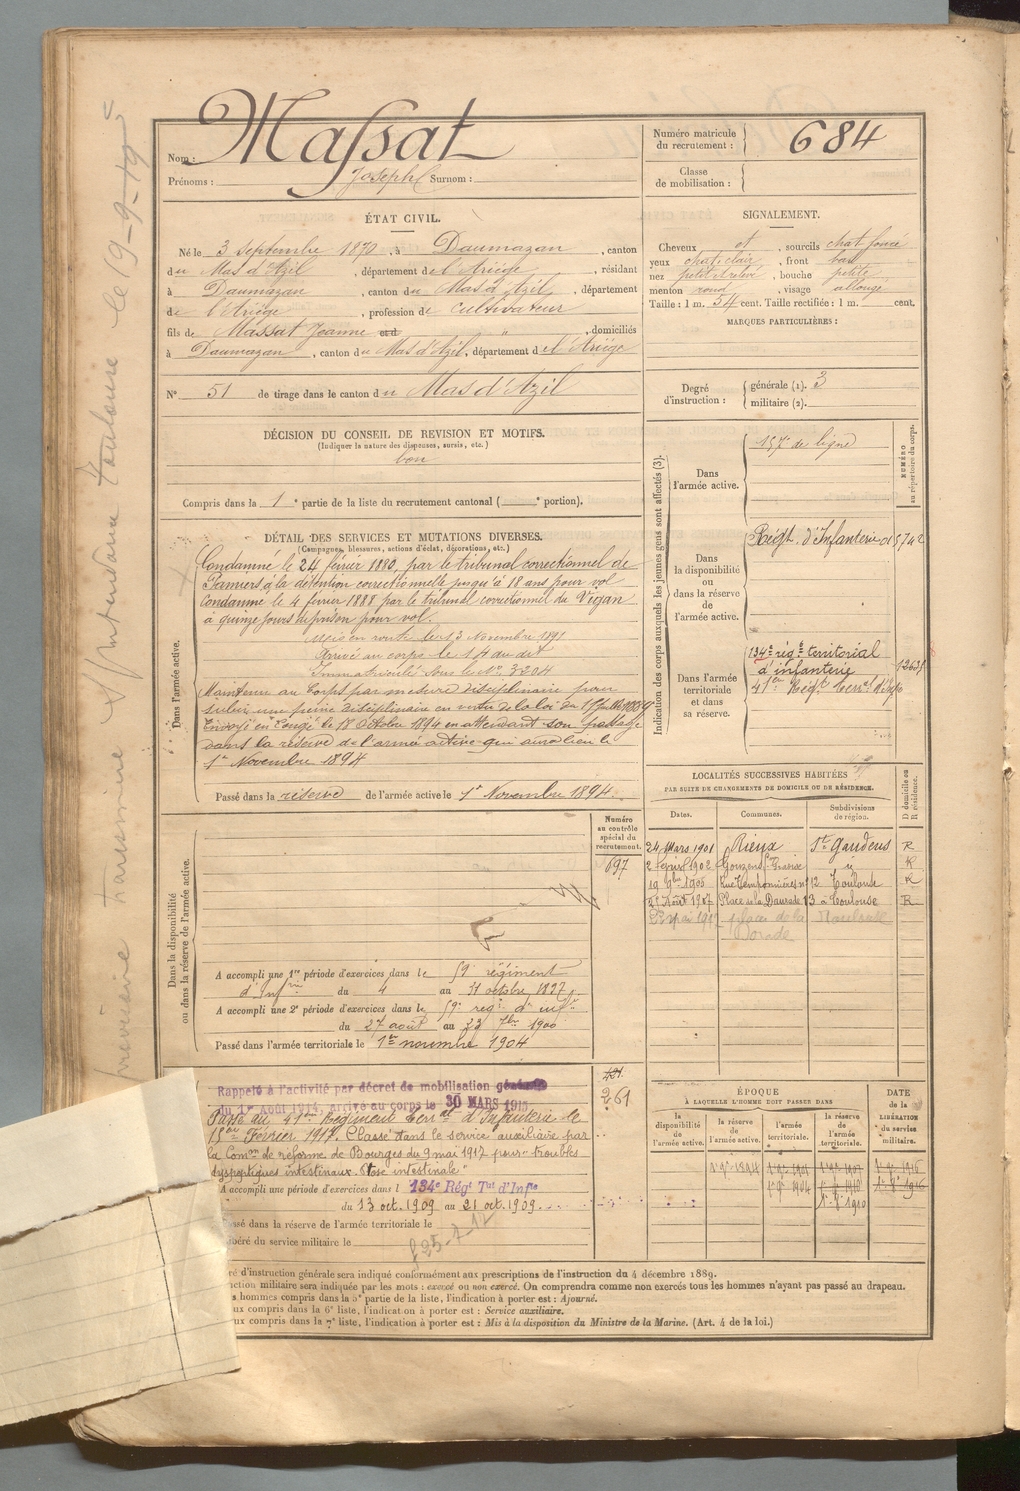 Massat
Nom :
Prénoms : Joseph Surnom :
Numéro matricule
du recrutement : 684
Classe
de mobilisation :
ÉTAT CIVIL.
Né le 3 septembre 1870, à Daumazan, canton
du Mas d'Azil, département de l'Ariège, résidant
à Daumazan, canton du Mas d'Azil, département
de l'Ariège, profession de cultivateur
fils de Massat Jeanne et d " , domiciliés
à Daumazan, canton du Mas d'Azil, département de l'Ariège
N° 51 de tirage dans le canton du Mas d'Azil
SIGNALEMENT.
Cheveux et , sourcils chat. foncé
yeux chat. clair , front bas
nez petit et relevé , bouche petite
menton rond , visage allongé
Taille : 1 m. 54 cent. Taille rectifiée : 1 m. cent.
MARQUES PARTICULIÈRES :
Degré
d'instruction :
générale (1). 3
militaire (2).
DÉCISION DU CONSEIL DE REVISION ET MOTIFS.
(Indiquer la nature des dispenses, sursis, etc.)
bon
Compris dans la 1e partie de la liste du recrutement cantonal ( e portion).
DÉTAIL DES SERVICES ET MUTATIONS DIVERSES.
(Campagnes, blessures, actions d'éclat, décorations, etc.)
Dans l'armée active.
Condamné le 24 février 1880, par le tribunal correctionnel de
Pamiers à la détention correctionnelle jusqu'à 18 ans pour vol
Condamné le 4 février 1888 par le tribunal correctionnel du Vigan
à quinze jours de prison pour vol.
Mis en route le 13 Novembre 1891
Arrivé au corps le 14 au dit
Immatriculé sous le N° 3204
Maintenu au Corps par mesure disciplinaire pour
subir une peine disciplinaire en vertu de la loi du
Envoyé en Congé le 18 Octobre 1894 en attendant son passage
dans la réserve de l'armée active qui aura lieu le
1er Novembre 1894
Passé dans la réserve de l'armée active le 1er Novembre 1894.
Indication des corps auxquels les jeunes gens sont affectés (3).
NUMÉRO
au répertoire du corps.
Dans
l'armée active.
157e de ligne
Dans
la disponibilité
ou
dans la réserve
de
l'armée active.
Régt. d'Infanterie
Dans l'armée
territoriale
et dans
sa réserve.
134e régt territorial
d'infanterie
41e Régt Terral d'Infie
LOCALITÉS SUCCESSIVES HABITÉES
PAR SUITE DE CHANGEMENTS DE DOMICILE OU DE RÉSIDENCE.
Dates.
Communes.
Subdivisions
de région.
D domicile ou
R résidence.
24 Mars 1901 Rieux St Gaudens R
2 févrir 1902 R
19 9bre 1905 12 Toulouse R
Août 1907 Place de la Daurade 13 à Toulouse R
place de la Toulouse
Dorade
Dans la disponibilité
ou dans la réserve de l'armée active.
Numéro
au contrôle
spécial du
recrutement.
697
A accompli une 1re période d'exercices dans le 59e régiment
d'Infrie du 4 au 31 octobre 1897.
A accompli une 2e période d'exercices dans le 59e régt d'infie
du 27 août au 23 7bre 1900
Passé dans l'armée territoriale le 1er novembre 1904
Rappelé à l'activité par décret de mobilisation générale
du 1er Août 1914, arrivé au corps le 30 MARS 1915
261
Passé au 41ème Régiment Terral d'Infanterie le
15 Février 1917. Classé dans le service auxiliaire par
la Comon de réforme de Bourges du 9 mai 1917 pour "troubles
dyspeptiques intestinaux. Ptose intestinale"
A accompli une période d'exercices dans l 134e Régt Tal d'Infie
du 13 oct. 1909 au 21 oct. 1909.
ssé dans la réserve de l'armée territoriale le
béré du service militaire le
ÉPOQUE
À LAQUELLE L'HOMME DOIT PASSER DANS
la
disponibilité
de
l'armée active.
la réserve
de
l'armée active.
l'armée
territoriale.
la réserve
de
l'armée
territoriale.
DATE
de la
LIBÉRATION
du service
militaire.
ré d'instruction générale sera indiqué conformément aux prescriptions de l'instruction du 4 décembre 1889.
ction militaire sera indiquée par les mots : exercé ou non exercé. On comprendra comme non exercés tous les hommes n'ayant pas passé au drapeau.
s hommes compris dans la 5e partie de la liste, l'indication à porter est : Ajourné.
ux compris dans la 6e liste, l'indication à porter est : Service auxiliaire.
ux compris dans la 7e liste, l'indication à porter est : Mis à la disposition du Ministre de la Marine. (Art. 4 de la loi.)
Intendance Toulouse le 19-9-19